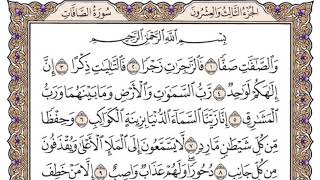 الجزء الثالث والعشرون
سورة الصافات
بِسْمِ اللَّهِ الرَّحْمَٰنِ الرَّحِيمِ
وَالصَّافَّاتِ صَفًّا ١ فَالزَّاجِرَاتِ زَجْرًا ٢ فَالتَّالِيَاتِ ذِكْرًا ٣ إِنَّ
إِلَٰهَكُمْ لَوَاحِدٌ ٤ رَّبُّ السَّمَاوَاتِ وَالْأَرْضِ وَمَا بَيْنَهُمَا وَرَبُّ
الْمَشَارِقِ ٥ إِنَّا زَيَّنَّا السَّمَاءَ الدُّنْيَا بِزِينَةٍ الْكَوَاكِبِ ٦ وَحِفْظًا
مِّن كُلِّ شَيْطَانٍ مَّارِدٍ ٧ لَّا يَسَّمَّعُونَ إِلَى الْمَلَإِ الْأَعْلَىٰ وَيُقْذَفُونَ
مِن كُلِّ جَانِبٍ ٨ دُحُورًا وَلَهُمْ عَذَابٌ وَاصِبٌ ٩ إِلَّا مَنْ خَطِفَ